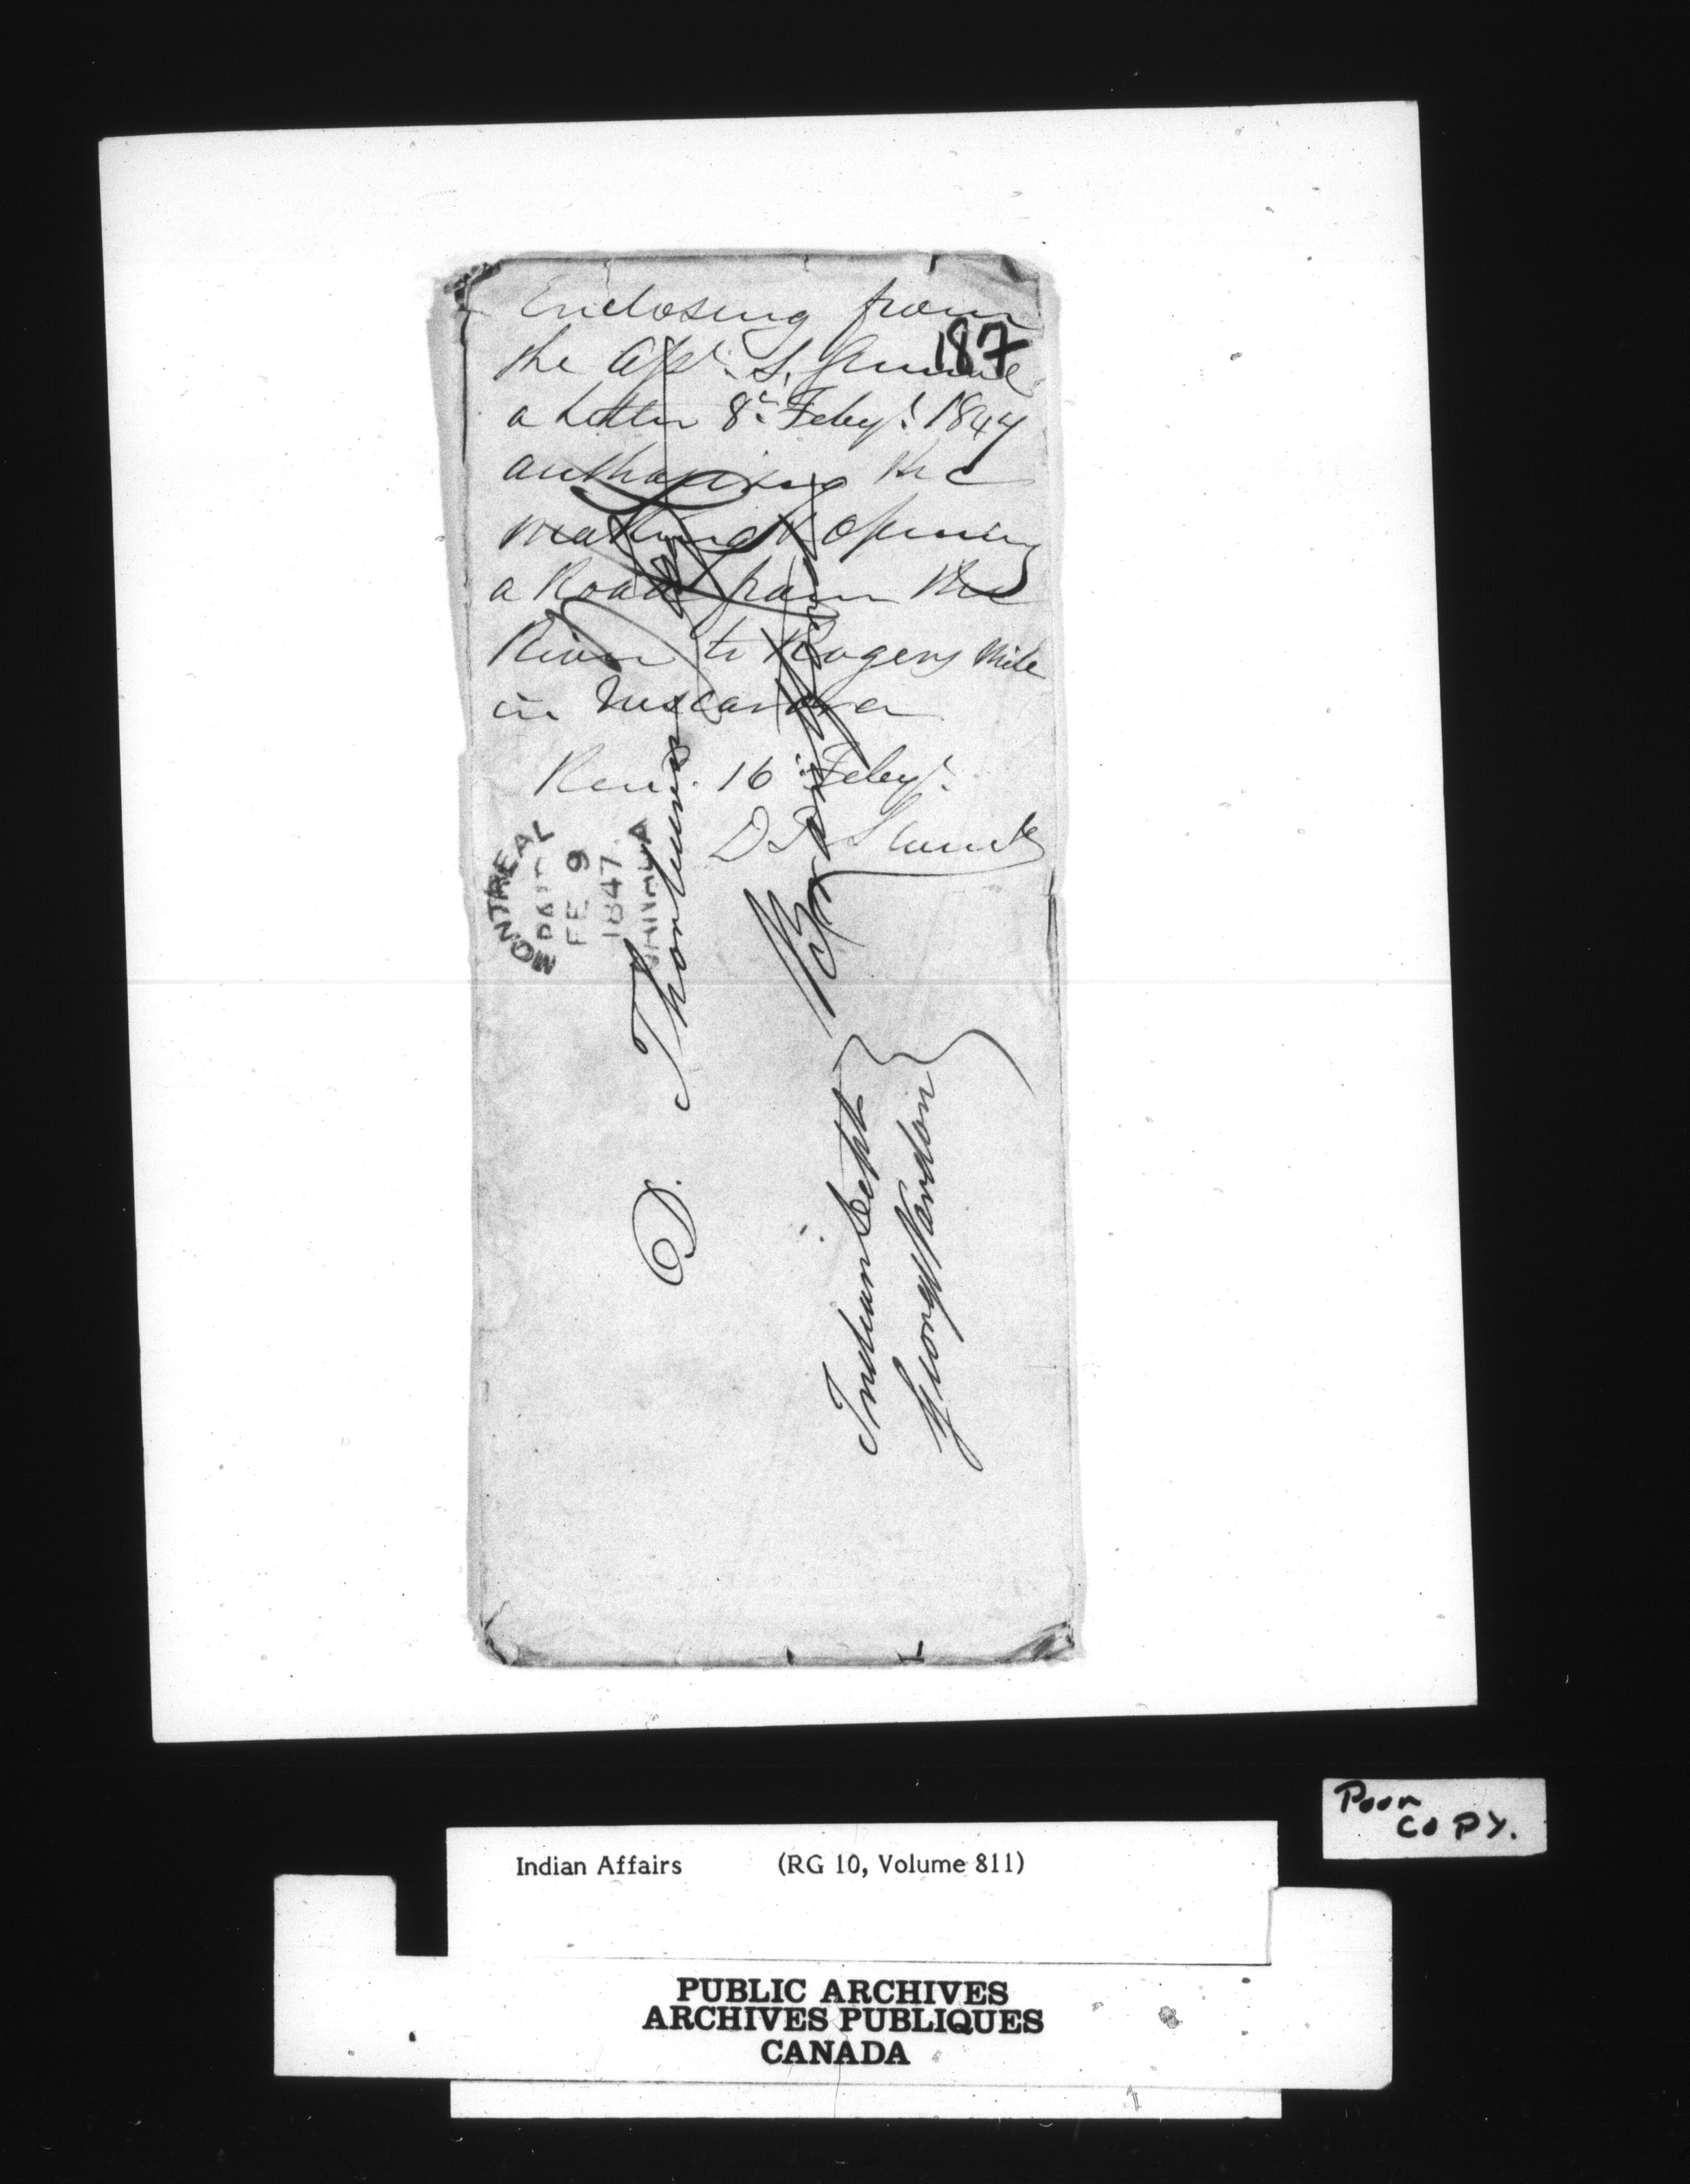 Enclosing from
187
the
a Letter 8th Feby. 1847
authorising the
making & opening
a Road from the
River to Rogers Mill
in Tuscarora
16 Feby.
MONTREAL
PAID
FE 9
1847
CANADA
D. Thorburn
Brantford
Indian Dept
George Vardon
Poor
COPY.
Indian Affairs (RG 10, Volume 811)
PUBLIC ARCHIVES
ARCHIVES PUBLIQUES
CANADA